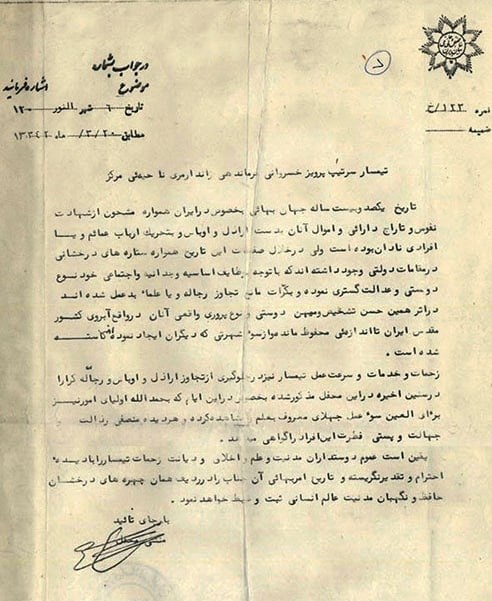 در جواب بشماره
موضوع
اشاره فرمائید
تاریخ ۶ شهر النور ۱۲۰
مطابق ۲۰/۳/ ماه ۱۳۴۲
نمره ۱۲۲/خ
ضمیمه
تیمسار سرتیپ پرویز خسروانی فرماندهی ژاندارمری ناحیه‌ی مرکز
تاریخ یکصد و بیست ساله جهان بهائی بخصوص در ایران همواره مشحون از شهادت
نفوس و تاراج دارائی و اموال آنان بدست اراذل و اوباش و بتحریک ارباب عمائم و یا
افرادی نادان بوده است ولی در خلال صفحات این تاریخ همواره ستاره های درخشانی
در مقامات دولتی وجود داشته اند که با توجه بوظایف اساسیه وجدانیه واجتماعی خود نوع
دوستی و عدالت گستری نموده و بکرات مانع تجاوز رجاله و یا علماء بدعمل شده اند
در اثر همین حسن تشخیص و میهن دوستی و نوع پروری واقعی آنان در واقع آبروی کشور
مقدس ایران تا اندازه‌ئی محفوظ مانده و از سوء شهرتی که دیگران ایجاد نموده کاسته
شده است .
زحمات و خدمات و سرعت عمل تیمسار نیز در جلوگیری از تجاوز اراذل و اوباش و رجاله کرارا
در سنین اخیره در این محفل مذکور شده بخصوص در این ایام که بحمد الله اولیای امور نیز
برأی العین سوء عمل جهلای معروف بعلم را مشاهده کرده و هر دیده منصفی رذالت و
جهالت و پستی فطرت این افراد را گواهی میدهد .
یقین است عموم دوستداران مدنیت و علم و اخلاق و دیانت زحمات تیمسار را با دیده
احترام و تقدیر نگریسته و تاریخ امر بهائی آن جناب را در ردیف همان چهره های درخشان
حافظ و نگهبان مدنیت عالم انسانی ثبت و ضبط خواهد نمود .
با رجای تائید